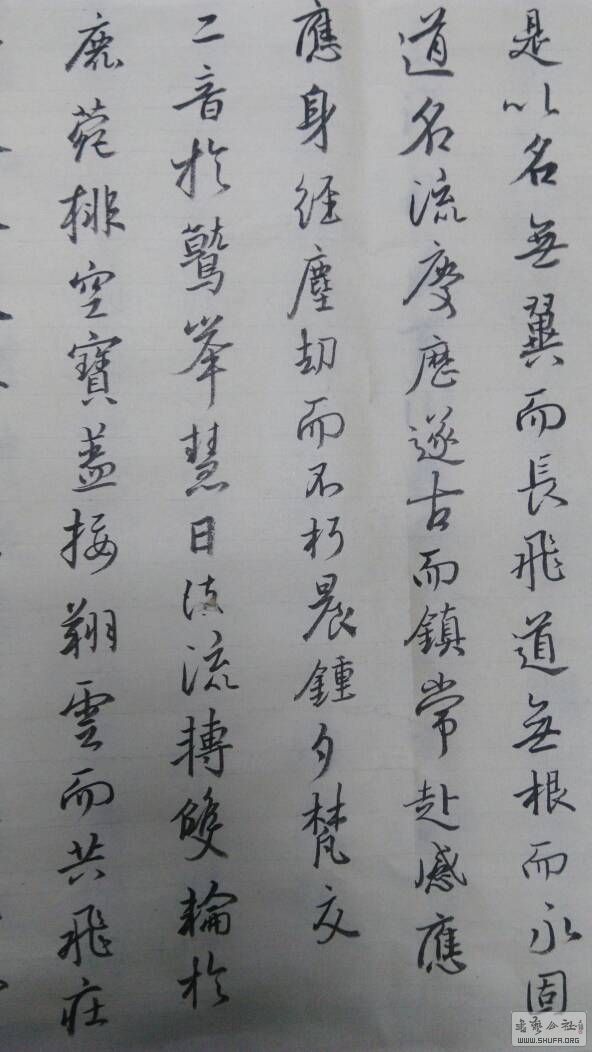 是以名無翼而長飛道無根而永固
道名流慶歷遂古而鎮常赴感應
應身經塵劫而不朽晨鍾夕梵交
二音於鷲峯慧日法流轉雙輪於
鹿菀排空寶蓋接翔雲而共飛莊
書藝公社
WWW.SHUFA.ORG